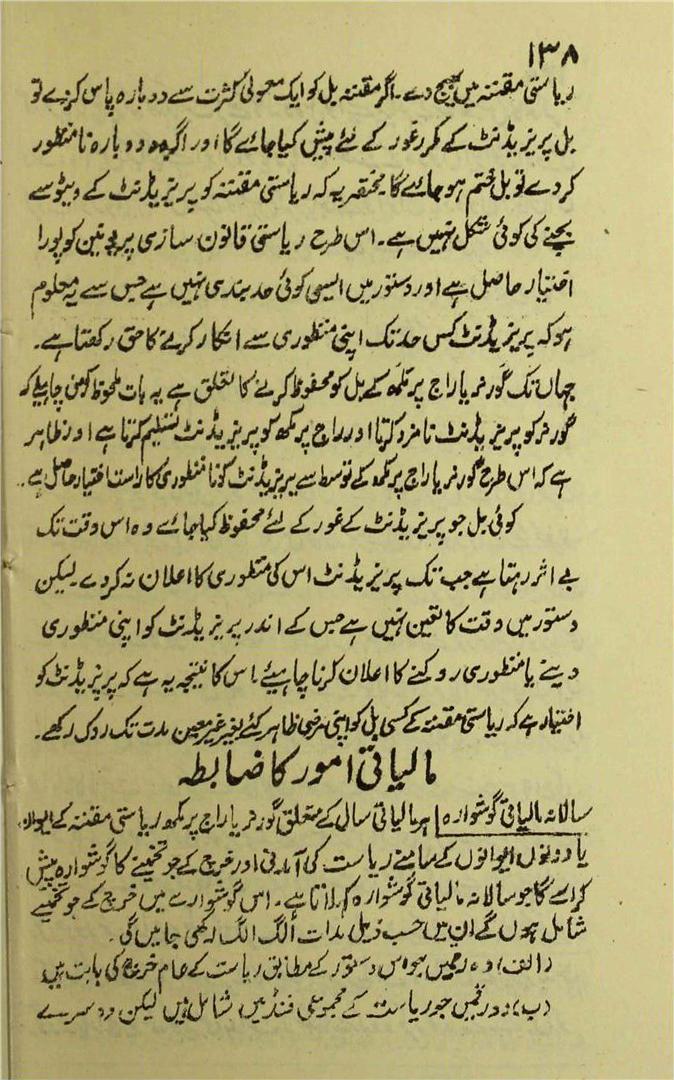 ۱۳۸
ریاستی مقننہ میں بھیج دے۔ اگر مقننہ بل کو ایک معمولی کثرت سے دوبارہ پاس کردے تو
بل پریزیڈنٹ کے مکرر غور کے لئے پیش کیا جائے گا اور اگر وہ دوبارہ نا منظور
کردے تو بل ختم ہو جائے گا۔ مختصر یہ کہ ریاستی مقننہ کو پریزیڈنٹ کے ویٹو سے
بچنے کی کوئی شکل نہیں ہے۔ اس طرح ریاستی قانون سازی پر یونین کو پورا
اختیار حاصل ہے اور دستور میں ایسی کوئی حد بندی نہیں ہے جس سے یہ معلوم
ہو کہ پریزیڈنٹ کس حد تک اپنی منظوری سے انکار کرنے کا حق رکھتا ہے۔
جہاں تک گورنر یا راج پرمکھ کے بل کو محفوظ کرنے کا تعلق ہے یہ بات ملحوظ رکھنی چاہیئے کہ
گورنر کو پریزیڈنٹ نامزد کرتا اور راج پرمکھ کو پریزیڈنٹ تسلیم کرتا ہے اور ظاہر
ہے کہ اس طرح گورنر یا راج پرمکھ کے توسط سے پریزیڈنٹ کو نا منظوری کا راست اختیار حاصل ہے۔
کوئی بل جو پریزیڈنٹ کے غور کے لئے محفوظ کیا جائے وہ اس وقت تک
بے اثر رہتا ہے جب تک پریزیڈنٹ اس کی منظوری کا اعلان نہ کردے۔ لیکن
دستور میں وقت کا تعین نہیں ہے جس کے اندر پریزیڈنٹ کو اپنی منظوری
دینے یا منظوری روکنے کا اعلان کرنا چاہیئے۔ اس کا نتیجہ یہ ہے کہ پریزیڈنٹ کو
اختیار ہے کہ ریاستی مقننہ کے کسی بل کو اپنی مرضی ظاہر کئے بغیر غیر معین مدت تک روک رکھے۔
مالیاتی امور کا ضابطہ
سالانہ مالیاتی گوشوارہ | ہر مالیاتی سال کے متعلق گورنر یا راج پرمکھ ریاستی مقننہ کے ایوان
یا دونوں ایوانوں کے سامنے ریاست کی آمدنی اور خرچ کے جو تخمینے کا گوشوارہ پیش
کرائے گا جو سالانہ مالیاتی گوشوارہ کہلاتا ہے۔ اس گوشوارے میں خرچ کے جو تخمینے
شامل ہوں گے ان میں حسب ذیل مدات الگ الگ رکھی جائیں گی۔
(الف) وہ رقمیں جو اس دستور کے مطابق ریاست کے عام خرچ کی بابت ہیں
(ب) وہ رقمیں جو ریاست کے مجموعی فنڈ میں شامل ہیں لیکن دوسرے